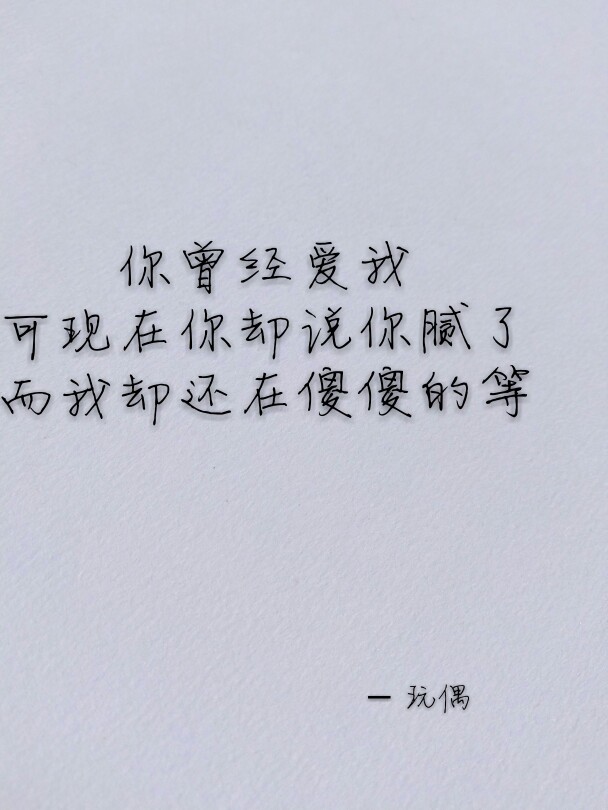 你曾经爱我
可现在你却说你腻了
而我却还在傻傻的等
— 玩偶